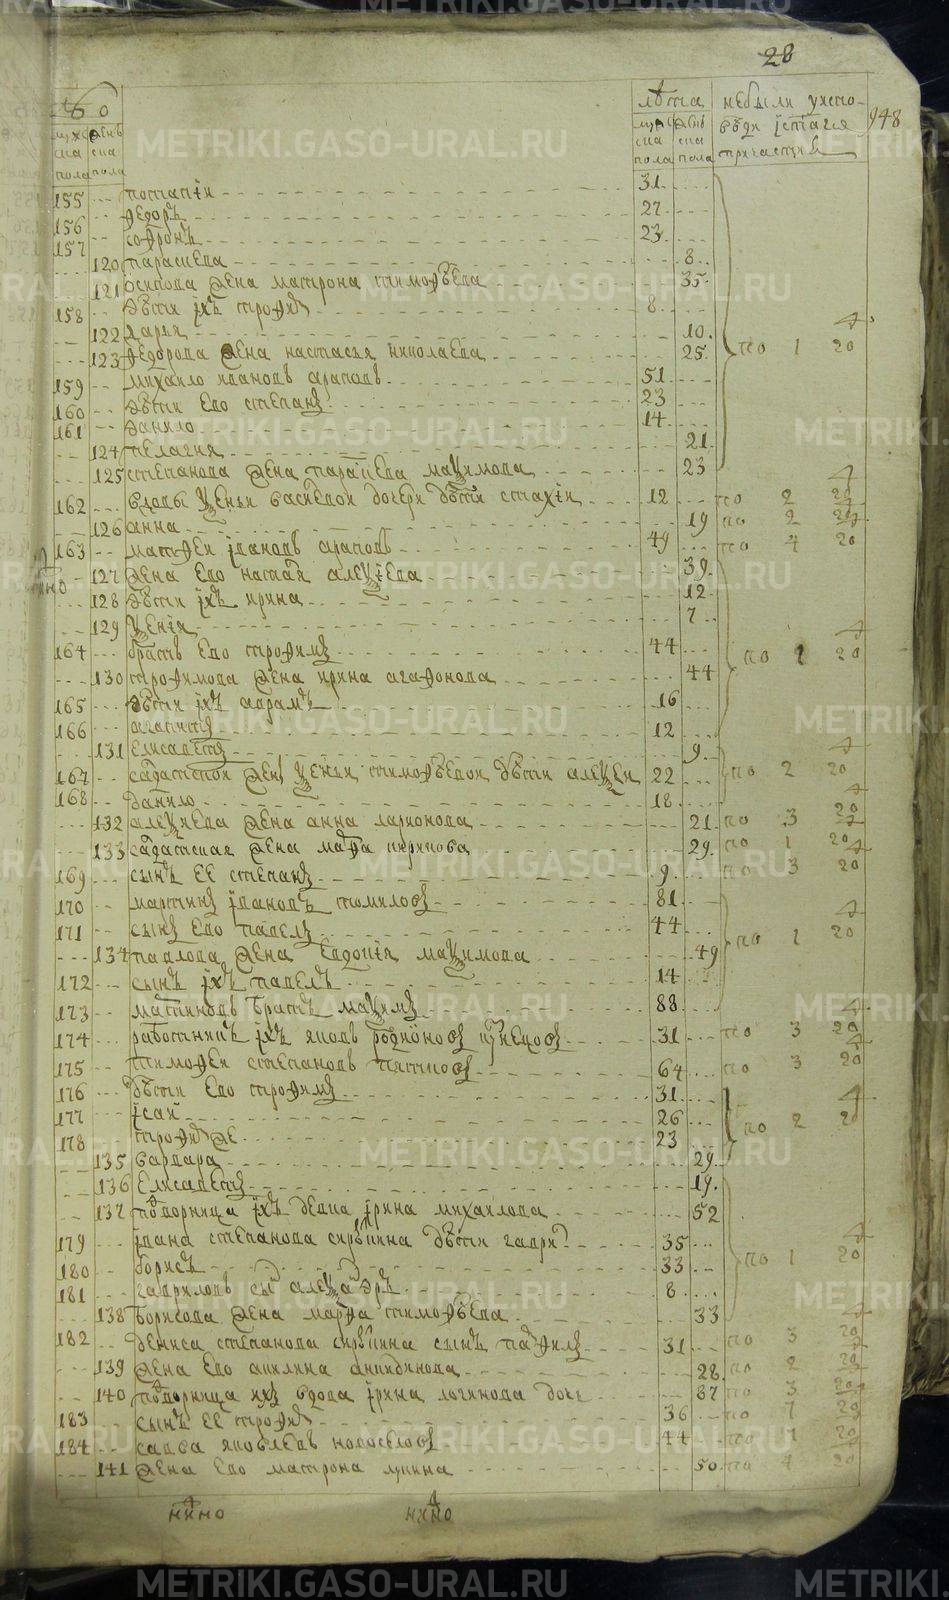 METRIKI.GASO-URAL.RU
28
948
лѣта
небыли уиспо-
вѣди їстагѡ
причастиѧ
мужеска пола
женска пола
мужеска пола
женска пола
155 потапїи 31
156 ѳедоръ 27
157 соѳронъ 23
120 параскева 8
121 осипова жена матрона тимоѳѣева 35
158 дѣти їхъ троѳимъ 8
122 дарья 10
123 ѳедорова жена настасья николаева 25
по 1 20
159 михаило ивановъ араповъ 51
160 дѣти ево степанъ 23
161 данило 14
124 пелагия 21
125 степанова жена параскева маѯимова 23
162 вдовы ѯеньи васильевой дочери дѣти стахїи 12 по 2 20
126 анна 19 по 2 20
163 матѳеи їванов араповъ 49 по 4 20
127 жена ево настася алеѯїева 39
128 дѣти їхъ ирина 12
129 ѯенїя 7
164 братъ ево троѳимъ 44
по 1 20
130 троѳимова жена ирина агаѳонова 44
165 дѣти їхъ аврамъ 16
166 агапитъ 12
131 елисаветъ 9
167 салдатской жены ѯеньи тимоѳѣевой дѣти алеѯеи 22 по 2 20
168 данило 18
132 алеѯиева жена анна ларионова 21 по 3 20
133 салдатская жена марѳа кирилова 29 по 1 20
169 сынъ ее степанъ 9 по 3 20
170 мартинъ ївановъ томиловъ 81
171 сынъ ево павелъ 44
по 1 20
134 павлова жена евдокїя маѯимова 49
172 сынъ їхъ павелъ 14
173 мартиновъ братъ маѯимъ 88
174 работникъ їхъ яковъ родїоновъ кузнецовъ 31 по 3 20
175 тимоѳеи степановъ 64 по 3 20
176 дѣти ево троѳимъ 31
177 їсаи 26
по 2 20
178 троѳимъ же 23
135 варвара 29
136 елисаветъ 19
137 подворница їхъ девка їрина михаилова 52
179 ївана степанова дѣти гаврило 35
по 1 20
180 борисъ 33
181 гавриловъ сынъ алеѯандръ 8
138 борисова жена марѳа тимоѳѣева 33
182 дениса степанова сынъ панѳилъ 31 по 3 20
139 жена ево акилина 28 по 2 20
140 подворница ихъ вдова їрина логинова дочь 87 по 3 20
183 сынъ ее троѳимъ 36 по 1 20
184 савва яковлевъ новоселовъ 44 по 1 20
141 жена ево матрона лукина 50 по 4 20
нино
нино